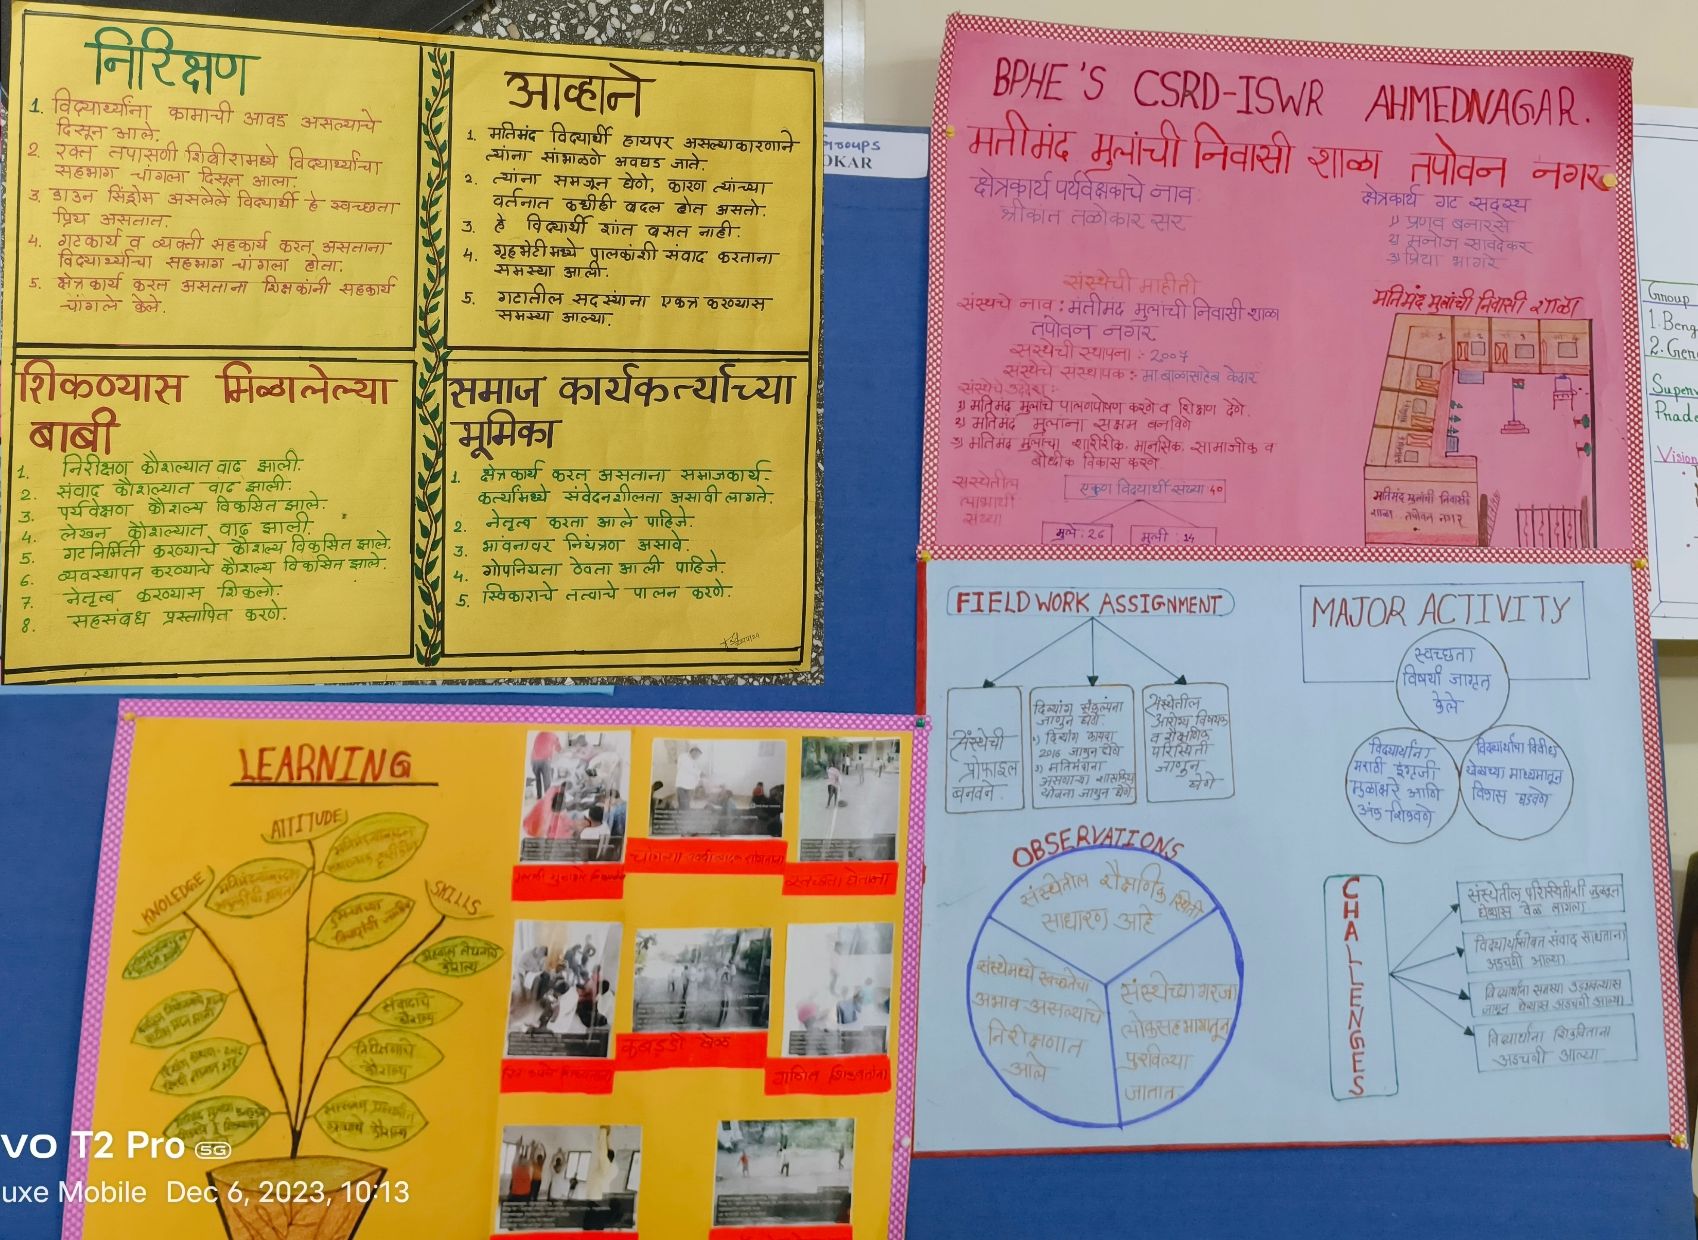 निरिक्षण
1. विद्यार्थ्यांना कामाची आवड असल्याचे
दिसून आले.
2. रक्त तपासणी शिबीरामध्ये विद्यार्थ्यांचा
सहभाग चांगला दिसून आला.
3. डाउन सिंड्रोम असलेले विद्यार्थी हे स्वच्छता
प्रिय असतात.
4. गटकार्य व व्यक्ती सहकार्य करत असताना
विद्यार्थ्यांचा सहभाग चांगला होता.
5. क्षेत्रकार्य करत असताना शिक्षकांनी सहकार्य
चांगले केले.
आव्हाने
1. मतिमंद विद्यार्थी हायपर असल्याकारणाने
त्यांना सांभाळणे अवघड जाते.
2. त्यांना समजून घेणे, कारण त्यांच्या
वर्तनात कधीही बदल होत असतो.
3. हे विद्यार्थी शांत बसत नाही.
4. गृहभेटीमध्ये पालकांशी संवाद करताना
समस्या आली.
5. गटातील सदस्यांना एकत्र करण्यास
समस्या आल्या.
शिकण्यास मिळालेल्या
बाबी
1. निरीक्षण कौशल्यात वाढ झाली.
2. संवाद कौशल्यात वाढ झाली.
3. पर्यवेक्षण कौशल्य विकसित झाले.
4. लेखन कौशल्यात वाढ झाली.
5. गटनिर्मिती करण्याचे कौशल्य विकसित झाले.
6. व्यवस्थापन करण्याचे कौशल्य विकसित झाले.
7. नेतृत्व करण्यास शिकलो.
8. सहसंबंध प्रस्तापित करणे.
समाज कार्यकर्त्याच्या
भूमिका
1. क्षेत्रकार्य करत असताना समाजकार्य-
कर्त्यामध्ये संवेदनशीलता असावी लागते.
2. नेतृत्व करता आले पाहिजे.
3. भावनावर नियंत्रण असावे.
4. गोपनियता ठेवता आली पाहिजे.
5. स्विकाराचे तत्वाचे पालन करणे.
OKAR
BPHE'S CSRD-ISWR AHMEDNAGAR.
मतीमंद मुलांची निवासी शाळा तपोवन नगर
क्षेत्रकार्य पर्यवेक्षकाचे नाव
श्रीकांत तळोकार सर
क्षेत्रकार्य गट सदस्य
1) प्रणव बनारसे
2) मनोज सावदेकर
3) प्रिया भागरे
संस्थेची माहीती
संस्थचे नाव : मतीमंद मुलांची निवासी शाळा
तपोवन नगर
संस्थेची स्थापना :- 2007
संस्थेचे संस्थापक :- मा बाळासाहेब केदार
संस्थेचे उद्देश :-
1) मतिमंद मुलांचे पालणपोषण करणे व शिक्षण देणे.
2) मतिमंद मुलांना सक्षम बनविणे
3) मतिमंद मुलांचा शारीरीक, मानसिक, सामाजीक व
बौधीक विकास करणे
संस्थेतील
लाभार्थी
संख्या
एकूण विद्यार्थी संख्या 40
मुले: 26 मुली : 14
मतिमंद मुलांची निवासी शाळा
मतिमंद मुलांची निवासी
शाळा तपोवन नगर
FIELD WORK ASSIGNMENT
संस्थेची
प्रोफाइल
बनवने
दिव्यांग संकल्पना
जाणून घेणे
1) दिव्यांग कायदा
2016 जाणून घेणे
योजना जाणून घेणे
संस्थेतील
आरोग्य विषयक
व शैक्षणिक
परिस्थिती
जाणून
घेणे
MAJOR ACTIVITY
स्वच्छता
विषयी जागृत
केले
विद्यार्थांना
मराठी इंग्रजी
मुळाक्षरे आणि
अंक शिकवणे
विद्यार्थांचा विविध
खेळाच्या माध्यमातून
विकास घडवणे
OBSERVATIONS
संस्थेतील शैक्षणिक स्थिती
साधारण आहे
संस्थेमध्ये स्वच्छतेचा
अभाव असल्याचे
निरीक्षणात
आले
संस्थेच्या गरजा
लोकसहभागातून
पुरविल्या
जातात
CHALLENGES
संस्थेतील परिस्थितीशी जुळवून
घेण्यास वेळ लागला
विद्यार्थांसोबत संवाद साधताना
अडचणी आल्या
विद्यार्थांना समस्या
जाणून घेण्यास अडचणी आल्या
विद्यार्थांना शिकविताना
अडचणी आल्या
Group
1. Beng
2. Gen
Superv
Prade
Vision
LEARNING
ATTITUDE
KNOLEDGE
SKILLS
अहवाल लेखनाचे
कौशल्य
संवादाचे
कौशल्य
कौशल्य
स्वच्छता घेताना
कबड्डी खेळ
गणित शिकवताना
VO T2 Pro 5G
uxe Mobile Dec 6, 2023, 10:13